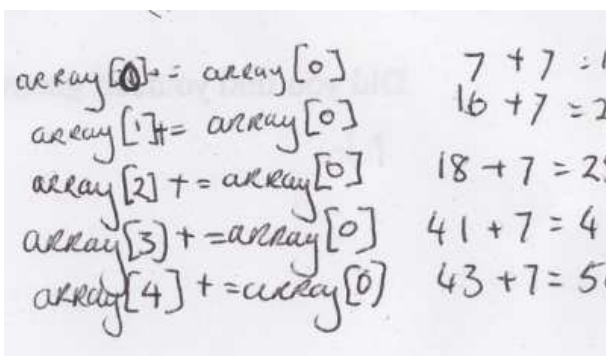 array[0]+= array[0] 7 + 7 = 1
array[1]+= array[0] 16 + 7 = 2
array[2] += array[0] 18 + 7 = 25
array[3] += array[0] 41 + 7 = 4
array[4] += array[0] 43 + 7 = 50